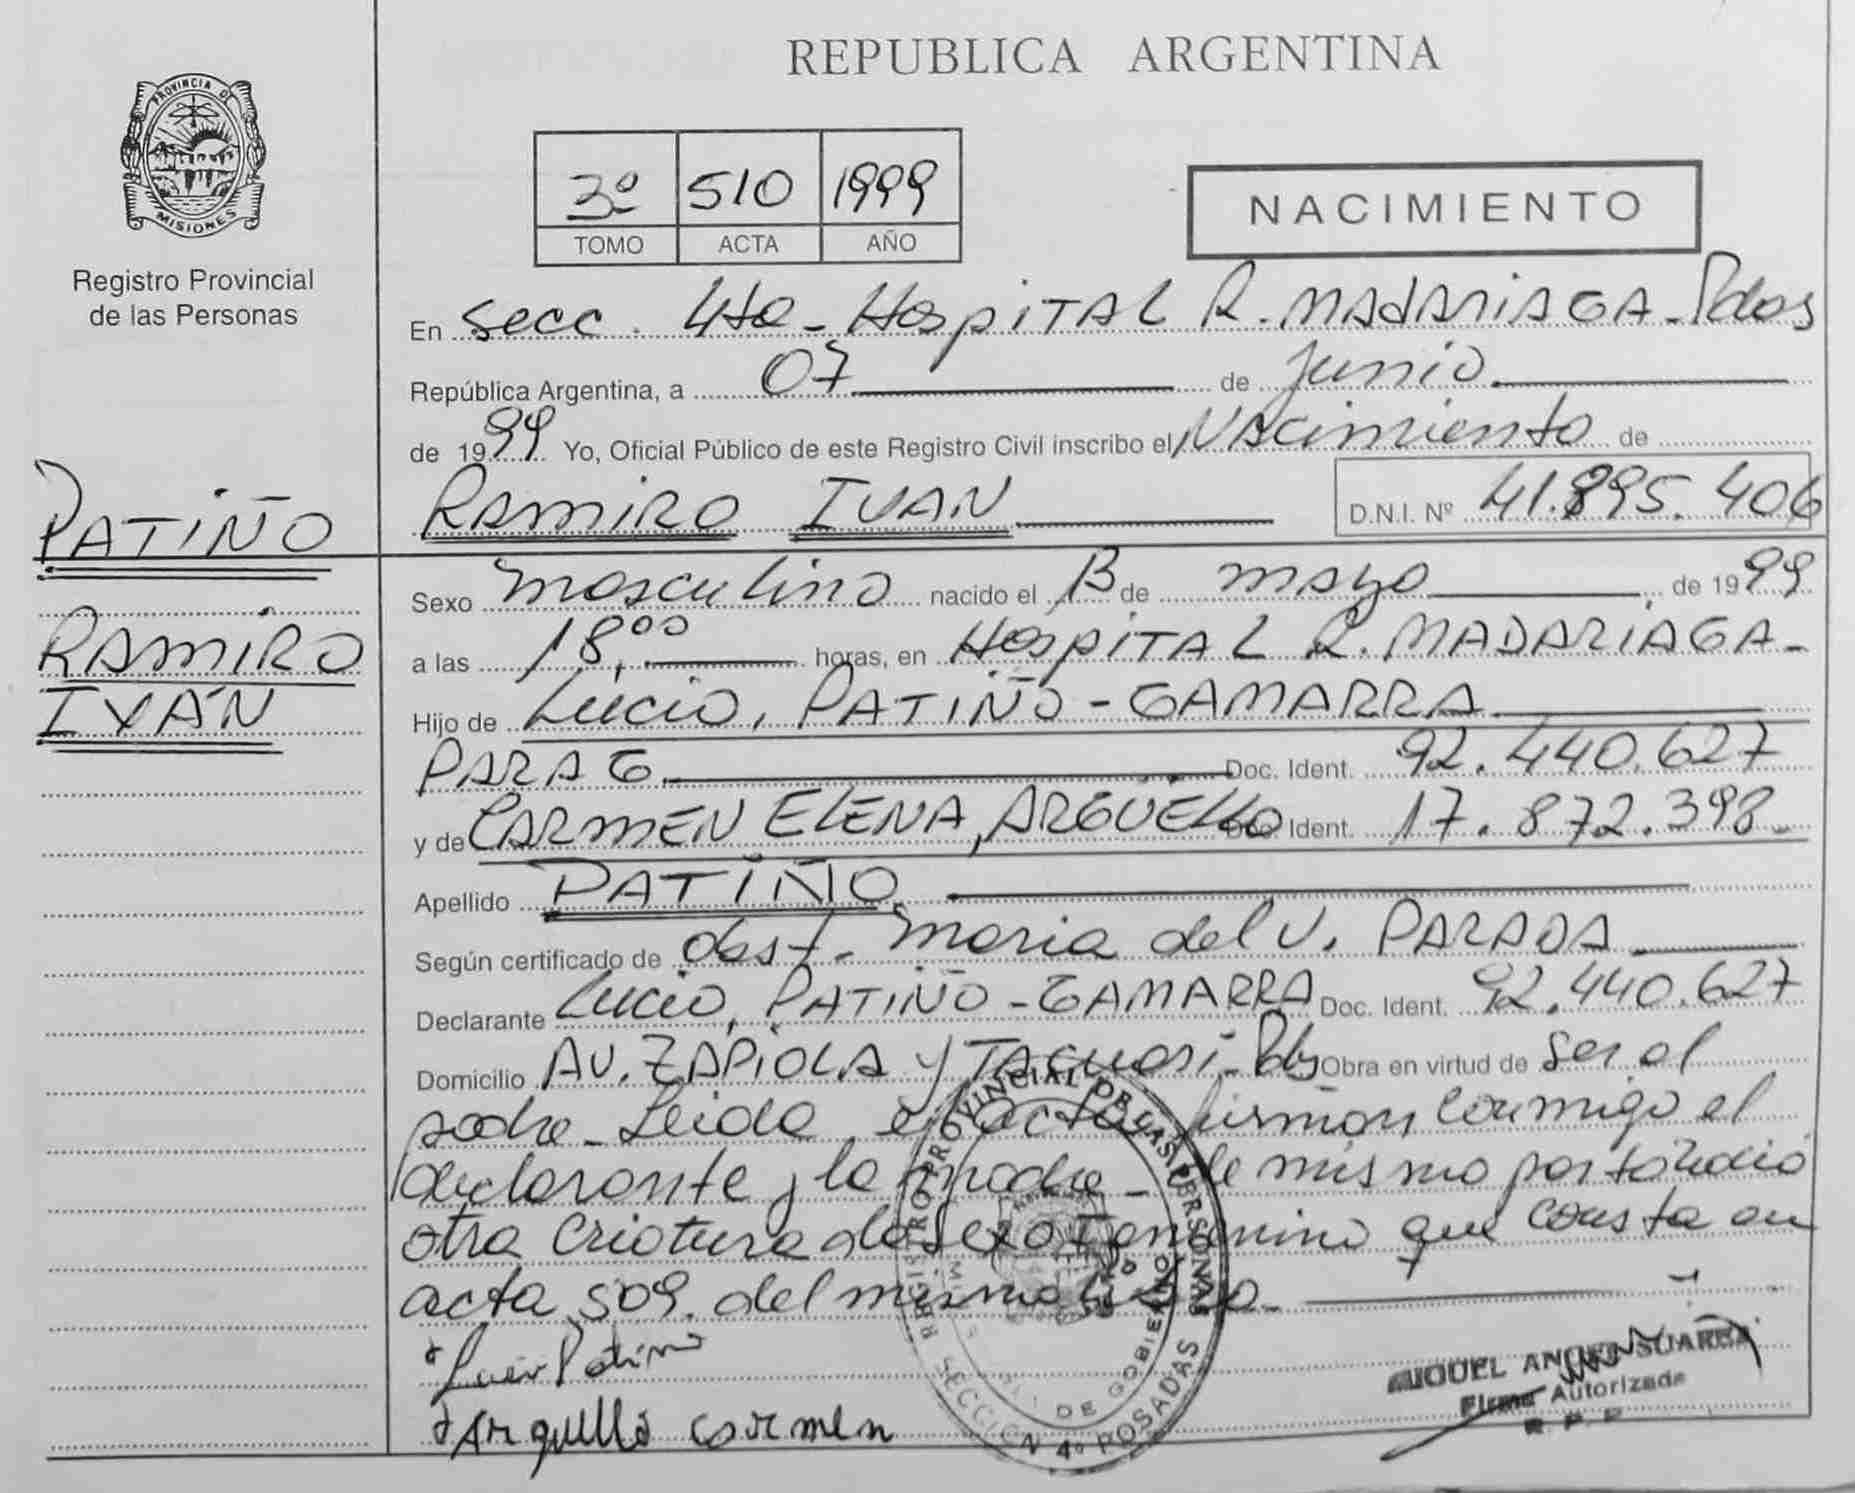 REPUBLICA ARGENTINA
PROVINCIA DE
MISIONES
Registro Provincial
de las Personas
3º 510 1999
TOMO ACTA AÑO
NACIMIENTO
En Secc. 4ta - Hospital R. MADARIAGA - Pdas
República Argentina, a 07 de junio
de 1999 Yo, Oficial Público de este Registro Civil inscribo el Nacimiento de
RAMIRO IVAN D.N.I. Nº 41.895.406
PATIÑO
RAMIRO
IVÁN
Sexo masculino nacido el 13 de mayo, de 1999
a las 18,00 horas, en Hospital R. MADARIAGA -
Hijo de Lucio, PATIÑO - GAMARRA
PARAG Doc. Ident. 92.440.627
y de CARMEN ELENA, ARGÜELLO Doc. Ident. 17.872.398
Apellido PATIÑO
Según certificado de obst. Maria del V. PARADA
Declarante Lucio, PATIÑO - GAMARRA Doc. Ident. 92.440.627
Domicilio AV. ZAPIOLA y TACUARI - Obra en virtud de ser el
padre - Leida el acta firman conmigo el
declarante y la madre - de mismo parto nació
otra criatura de sexo Femenino que consta en
acta 509. del mismo libro -
Lucio Patiño
Arguello carmen
REGISTRO PROVINCIAL DE LAS PERSONAS
DE GOBIERNO
SECCION 4º POSADAS
MIGUEL ANGEL SUAREZ
Firma Autorizada
R. P. P.